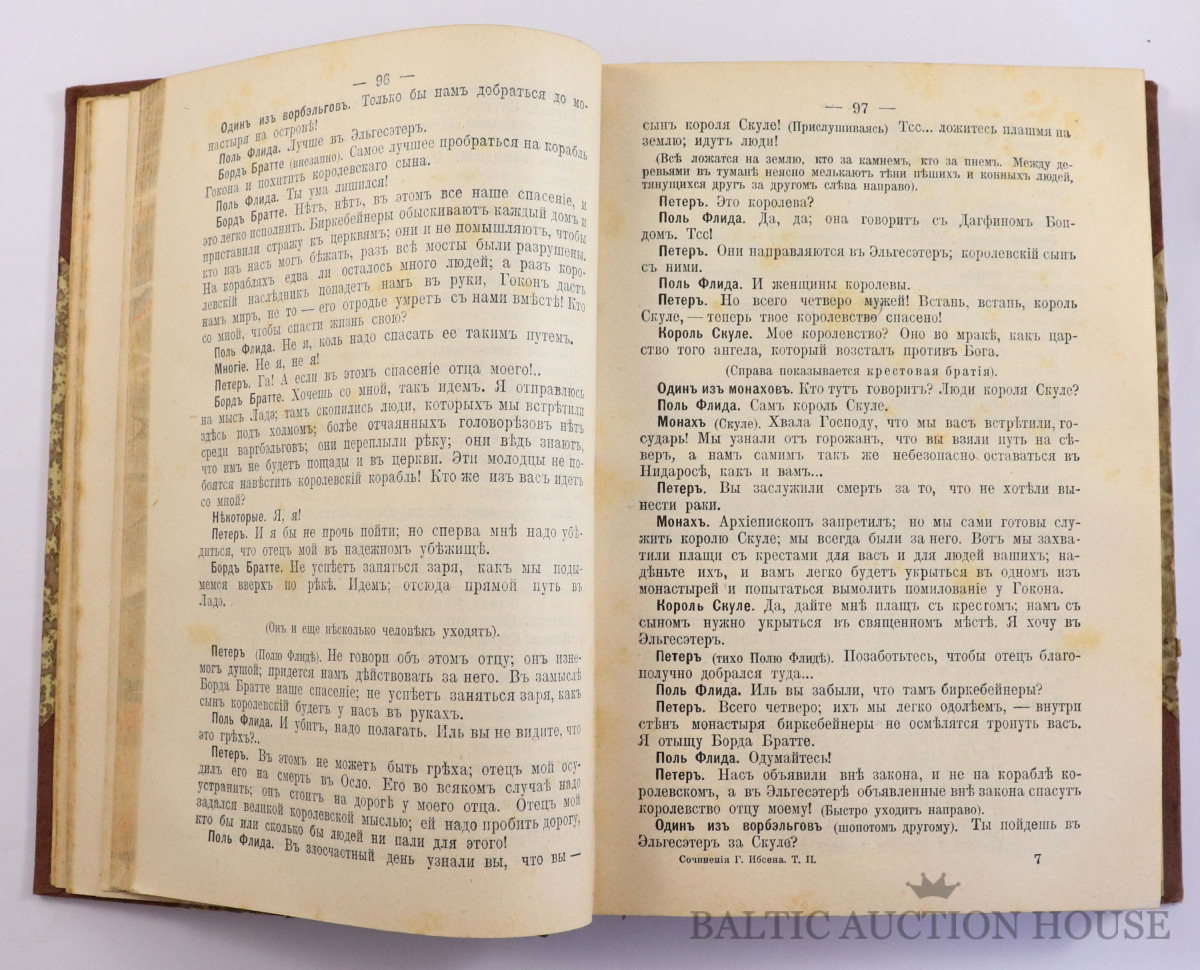 — 96 —
Одинъ изъ ворбэльговъ. Только бы намъ добраться до мо-
настыря на островѣ!
Поль Флида. Лучше въ Эльгесэтеръ.
Бордъ Братте (внезапно). Самое лучшее пробраться на корабль
Гокона и похитить королевскаго сына.
Поль Флида. Ты ума лишился!
Бордъ Братте. Нѣтъ, нѣтъ, въ этомъ все наше спасеніе, и
это легко исполнить. Биркебейнеры обыскиваютъ каждый домъ и
приставили стражу къ церквямъ; они и не помышляютъ, чтобы
кто изъ насъ могъ бѣжать, разъ всѣ мосты были разрушены.
На корабляхъ едва ли осталось много людей; а разъ коро-
левскій наслѣдникъ попадетъ намъ въ руки, Гоконъ дастъ
намъ миръ, не то — его отродье умретъ съ нами вмѣстѣ! Кто
со мной, чтобы спасти жизнь свою?
Поль Флида. Не я, коль надо спасать ее такимъ путемъ.
Многіе. Не я, не я!
Петеръ. Га! А если въ этомъ спасеніе отца моего!..
Бордъ Братте. Хочешь со мной, такъ идемъ. Я отправлюсь
на мысъ Ладэ; тамъ скопились люди, которыхъ мы встрѣтили
здѣсь подъ холмомъ; болѣе отчаянныхъ головорѣзовъ нѣтъ
среди варгбэльговъ; они переплыли рѣку; они вѣдь знаютъ,
что имъ не будетъ пощады и въ церкви. Эти молодцы не по-
боятся навѣстить королевскій корабль! Кто же изъ васъ идетъ
со мной?
Нѣкоторые. Я, я!
Петеръ. И я бы не прочь пойти; но сперва мнѣ надо убѣ-
диться, что отецъ мой въ надежномъ убѣжищѣ.
Бордъ Братте. Не успѣетъ заняться заря, какъ мы поды-
мемся вверхъ по рѣкѣ. Идемъ; отсюда прямой путь въ
Ладэ.
(Онъ и еще нѣсколько человѣкъ уходятъ).
Петеръ (Полю Флидѣ). Не говори объ этомъ отцу; онъ изне-
могъ душой; придется намъ дѣйствовать за него. Въ замыслѣ
Борда Братте наше спасеніе; не успѣетъ заняться заря, какъ
сынъ королевскій будетъ у насъ въ рукахъ.
Поль Флида. И убитъ, надо полагать. Иль вы не видите, что
это грѣхъ?..
Петеръ. Въ этомъ не можетъ быть грѣха; отецъ мой осу-
дилъ его на смерть въ Осло. Его во всякомъ случаѣ надо
устранить; онъ стоитъ на дорогѣ у моего отца. Отецъ мой
задался великой королевской мыслью; ей надо пробить дорогу,
кто бы или сколько бы людей ни пали для этого!
Поль Флида. Въ злосчастный день узнали вы, что вы —
— 97 —
сынъ короля Скуле! (Прислушиваясь) Тсс... ложитесь плашмя на
землю; идутъ люди!
(Всѣ ложатся на землю, кто за камнемъ, кто за пнемъ. Между де-
ревьями въ туманѣ неясно мелькаютъ тѣни пѣшихъ и конныхъ людей,
тянущихся другъ за другомъ слѣва направо).
Петеръ. Это королева?
Поль Флида. Да, да; она говоритъ съ Дагфиномъ Бон-
домъ. Тсс!
Петеръ. Они направляются въ Эльгесэтеръ; королевскій сынъ
съ ними.
Поль Флида. И женщины королевы.
Петеръ. Но всего четверо мужей! Встань, встань, король
Скуле, — теперь твое королевство спасено!
Король Скуле. Мое королевство? Оно во мракѣ, какъ цар-
ство того ангела, который возсталъ противъ Бога.
(Справа показывается крестовая братія).
Одинъ изъ монаховъ. Кто тутъ говоритъ? Люди короля Скуле?
Поль Флида. Самъ король Скуле.
Монахъ (Скуле). Хвала Господу, что мы васъ встрѣтили, го-
сударь! Мы узнали отъ горожанъ, что вы взяли путь на сѣ-
веръ, а намъ самимъ такъ же небезопасно оставаться въ
Нидаросѣ, какъ и вамъ...
Петеръ. Вы заслужили смерть за то, что не хотѣли вы-
нести раки.
Монахъ. Архіепископъ запретилъ; но мы сами готовы слу-
жить королю Скуле; мы всегда были за него. Вотъ мы захва-
тили плащи съ крестами для васъ и для людей вашихъ; на-
дѣньте ихъ, и вамъ легко будетъ укрыться въ одномъ изъ
монастырей и попытаться вымолить помилованіе у Гокона.
Король Скуле. Да, дайте мнѣ плащъ съ крестомъ; намъ съ
сыномъ нужно укрыться въ священномъ мѣстѣ. Я хочу въ
Эльгесэтеръ.
Петеръ (тихо Полю Флидѣ). Позаботьтесь, чтобы отецъ благо-
получно добрался туда...
Поль Флида. Иль вы забыли, что тамъ биркебейнеры?
Петеръ. Всего четверо; ихъ мы легко одолѣемъ, — внутри
стѣнъ монастыря биркебейнеры не осмѣлятся тронуть васъ.
Я отыщу Борда Братте.
Поль Флида. Одумайтесь!
Петеръ. Насъ объявили внѣ закона, и не на кораблѣ ко-
ролевскомъ, а въ Эльгесэтерѣ объявленные внѣ закона спасутъ
королевство отцу моему! (Быстро уходитъ направо).
Одинъ изъ ворбэльговъ (шопотомъ другому). Ты пойдешь въ
Эльгесэтеръ за Скуле?
Сочиненія Г. Ибсена. Т. II. 7
BALTIC AUCTION HOUSE